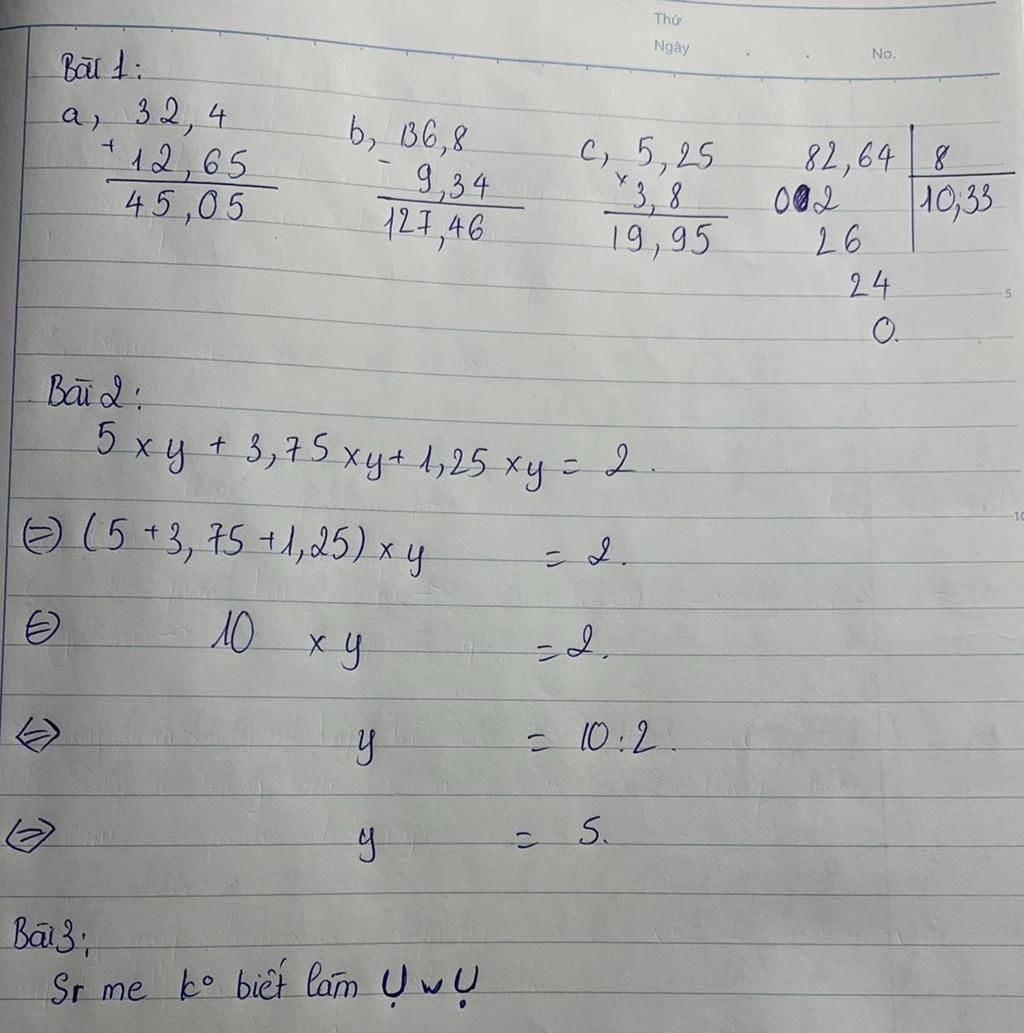 Thứ
Ngày . . No.
Bài 1:
a, 32,4
+ 12,65
45,05
b, 136,8
- 9,34
127,46
c, 5,25
x 3,8
19,95
82,64 | 8
002 | 10,33
26
24
0.
5
Bài 2:
5 x y + 3,75 x y + 1,25 x y = 2.
(=) (5 + 3,75 + 1,25) x y = 2.
10
(=) 10 x y = 2.
<=> y = 10:2.
<=> y = 5.
Bài 3:
Sr me ko biết làm Ụ w Ụ